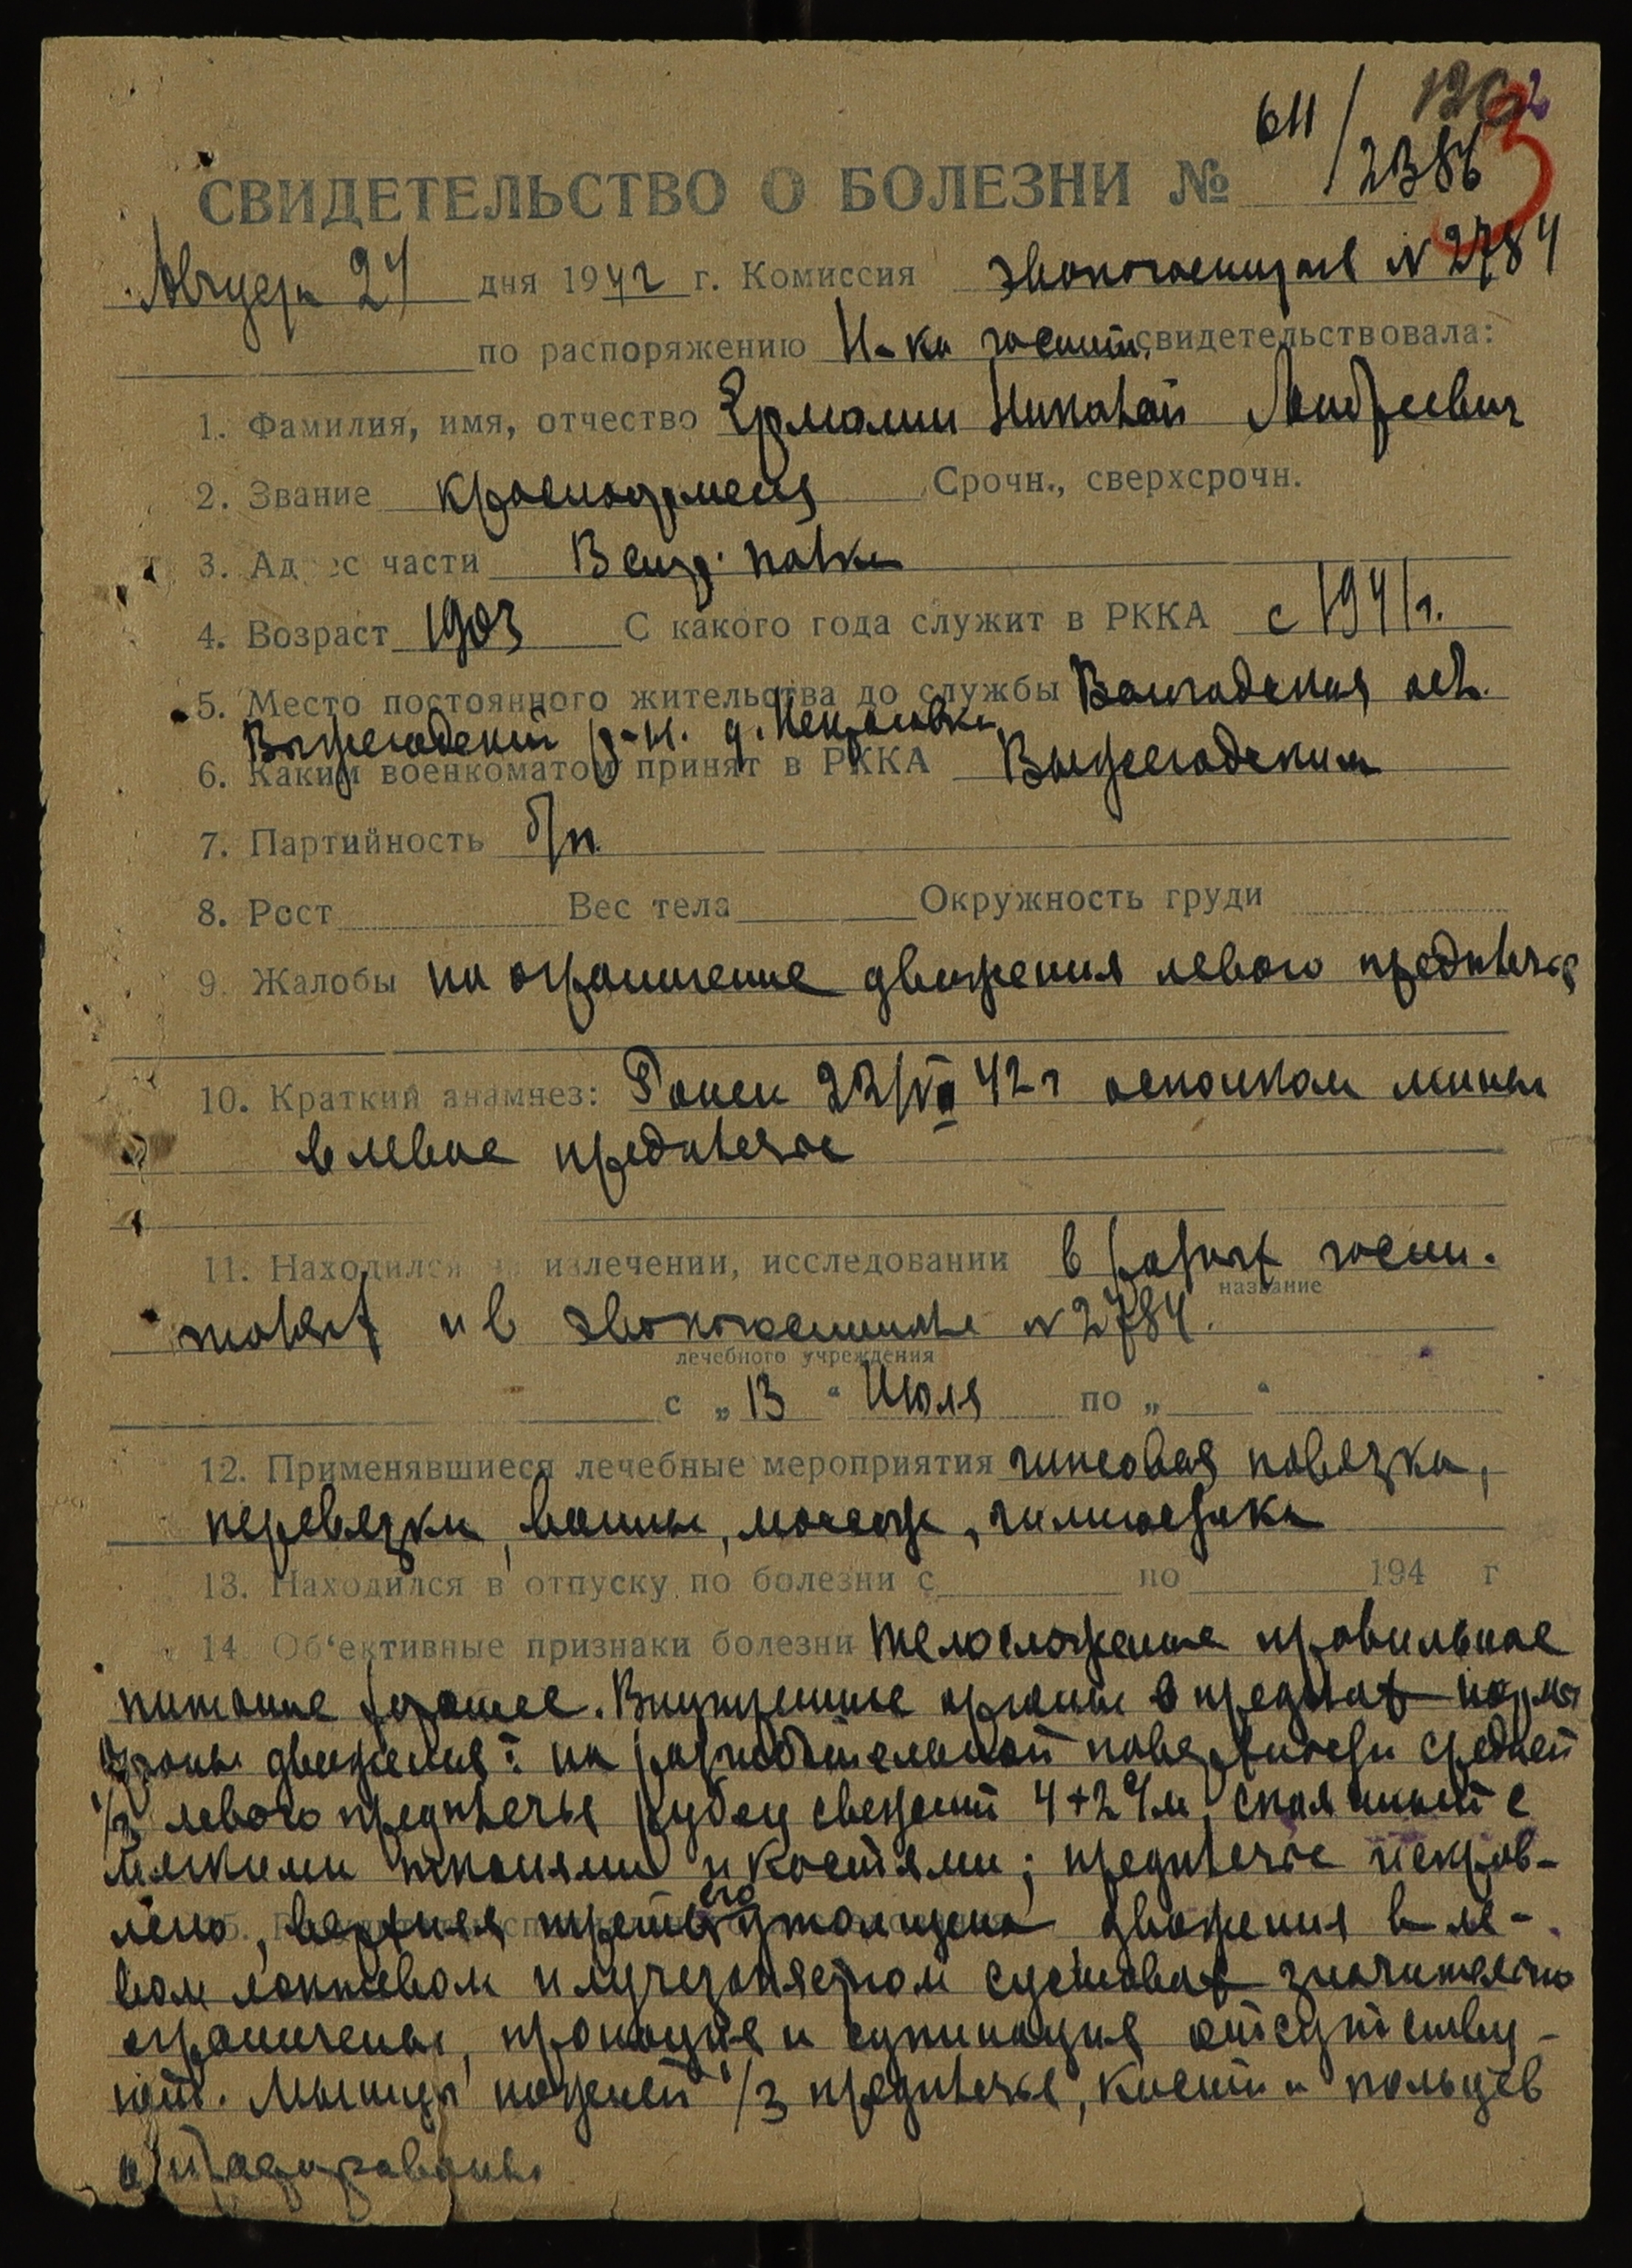 611/2386
СВИДЕТЕЛЬСТВО О БОЛЕЗНИ №
Августа 27 дня 1942 г. Комиссия эвакогоспиталя № 2784
по распоряжению Н-ка госпит. свидетельствовала:
1. Фамилия, имя, отчество Ермолин Николай Андреевич
2. Звание красноармеец Срочн., сверхсрочн.
3. Адрес части полка
4. Возраст 1903 С какого года служит в РККА с 1941 г.
5. Место постоянного жительства до службы Вологодская обл.
Вытегорский р-н. д.
6. Каким военкоматом принят в РККА Вытегорским
7. Партийность б/п.
8. Рост Вес тела Окружность груди
9. Жалобы на ограничение движения левого предплечья
10. Краткий анамнез: Ранен 42 г осколком мины
в левое предплечье
11. Находился на излечении, исследовании в госпи-
название
талях и в эвакогоспитале № 2784.
лечебного учреждения
с „ 13 “ Июля по „ “
12. Применявшиеся лечебные мероприятия гипсовая повязка,
перевязки, ванны, массаж, гимнастика
13. Находился в отпуску по болезни с по 194 г
14. Об‘ективные признаки болезни Телосложение правильное
питание хорошее. Внутренние органы в пределах нормы
Органы движения: на разгибательной поверхности средней
1/3 левого предплечья рубец свежий 4+2 см, спаянный с
мягкими тканями и костями; предплечье искрив-
лено, верхняя треть его утолщена движения в ле-
вом локтевом и лучезапястном суставах значительно
ограничены, пронация и супинация отсутству-
ют. Мышцы нижней 1/3 предплечья, кисти и пальцев
атрофированы